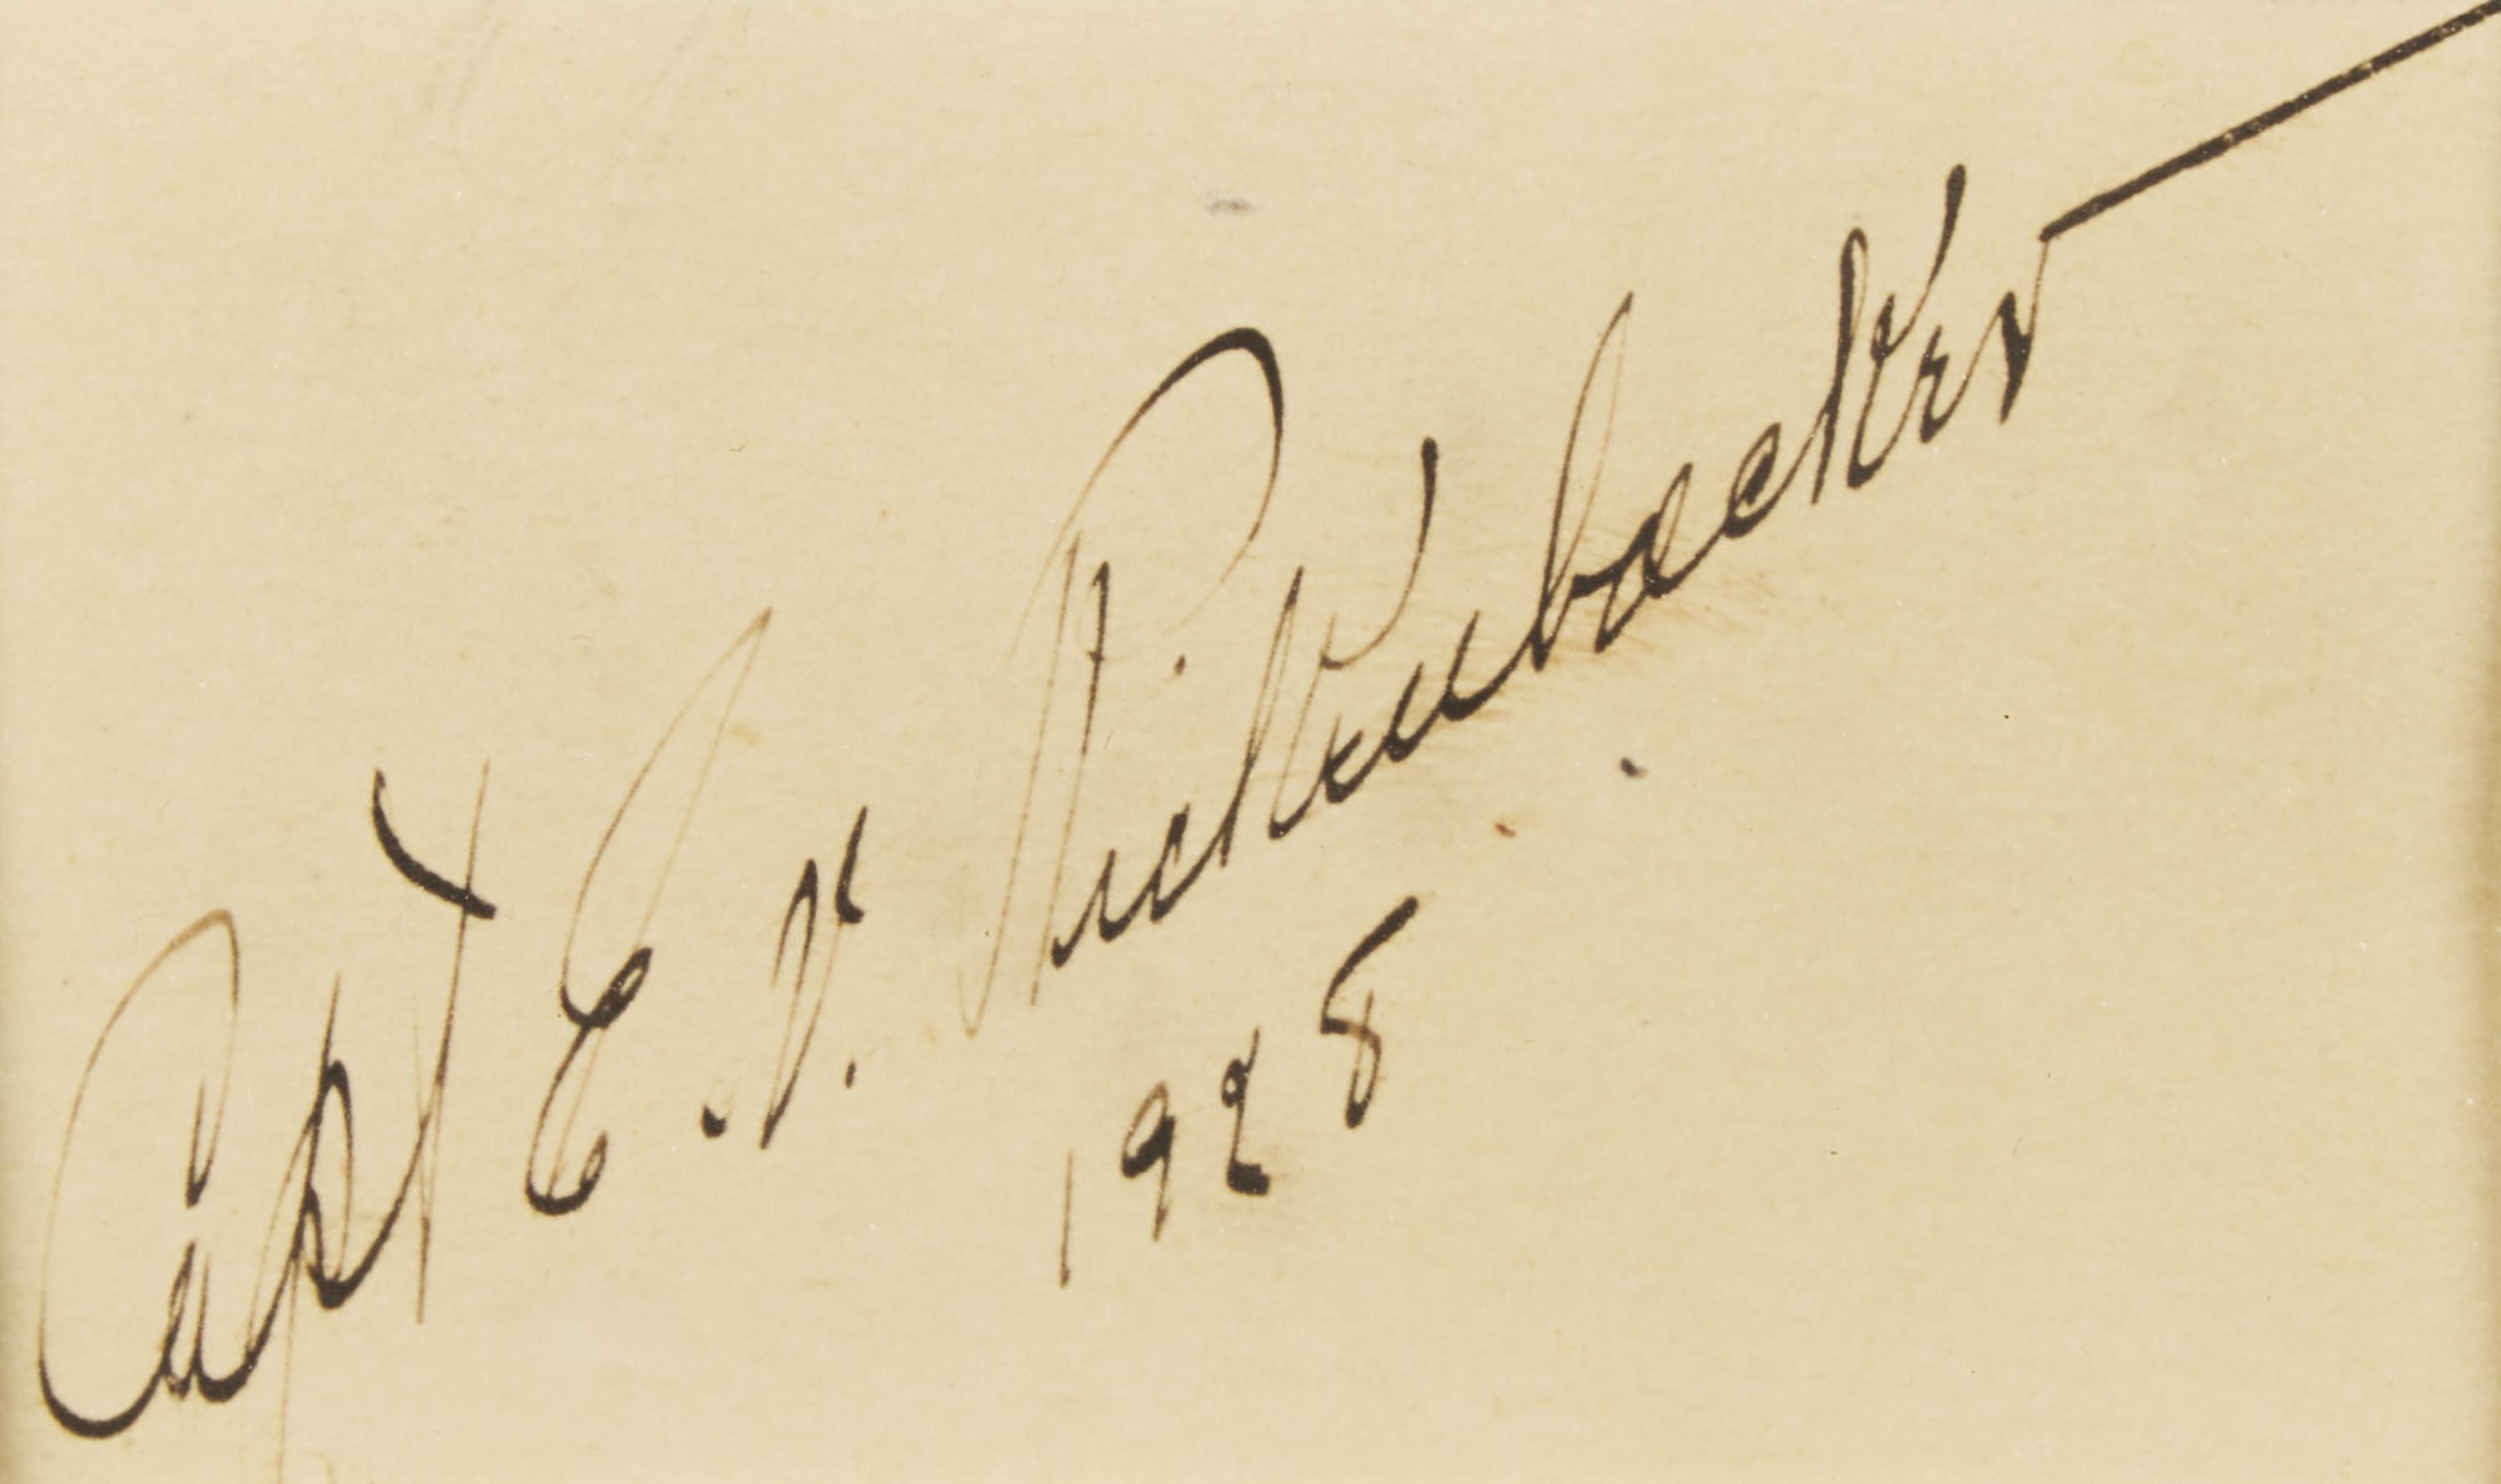 Capt E.V. Rickenbacker
1928